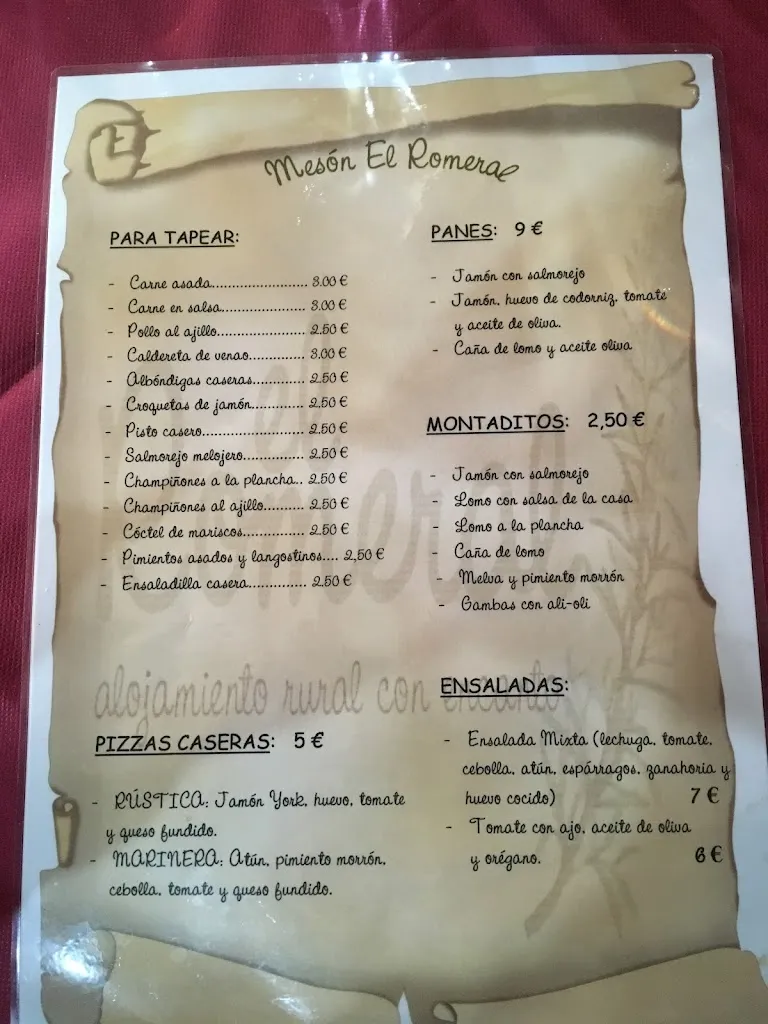 Mesón El Romeral
PARA TAPEAR:
- Carne asada........................ 3.00 €
- Carne en salsa..................... 3.00 €
- Pollo al ajillo...................... 2.50 €
- Caldereta de venao.............. 3.00 €
- Albóndigas caseras............. 2.50 €
- Croquetas de jamón............. 2,50 €
- Pisto casero......................... 2.50 €
- Salmorejo melojero............... 2.50 €
- Champiñones a la plancha.. 2.50 €
- Champiñones al ajillo.......... 2.50 €
- Cóctel de mariscos............... 2.50 €
- Pimientos asados y langostinos.... 2,50 €
- Ensaladilla casera.............. 2.50 €
PANES: 9 €
- Jamón con salmorejo
- Jamón, huevo de codorniz, tomate
y aceite de oliva.
- Caña de lomo y aceite oliva
MONTADITOS: 2,50 €
- Jamón con salmorejo
- Lomo con salsa de la casa
- Lomo a la plancha
- Caña de lomo
- Melva y pimiento morrón
- Gambas con ali-oli
alojamiento rural con encanto
PIZZAS CASERAS: 5 €
- RÚSTICA: Jamón York, huevo, tomate
y queso fundido.
- MARINERA: Atún, pimiento morrón,
cebolla, tomate y queso fundido.
ENSALADAS:
- Ensalada Mixta (lechuga, tomate,
cebolla, atún, espárragos, zanahoria y
huevo cocido) 7 €
- Tomate con ajo, aceite de oliva
y orégano. 6 €